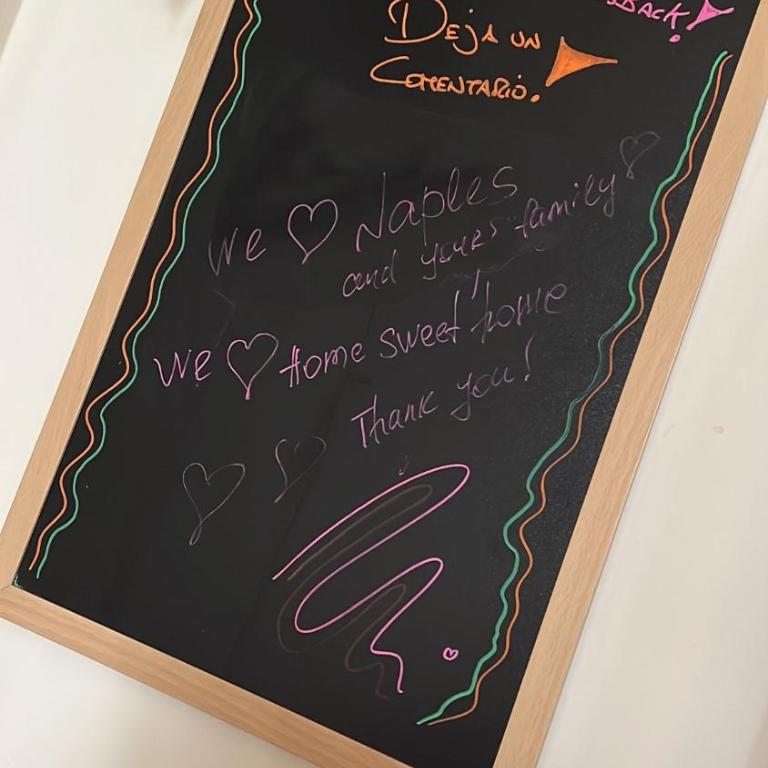 DEJA UN
COMENTARIO.
We ♡ Naples
and yours family
We ♡ Home sweet home
Thank you!